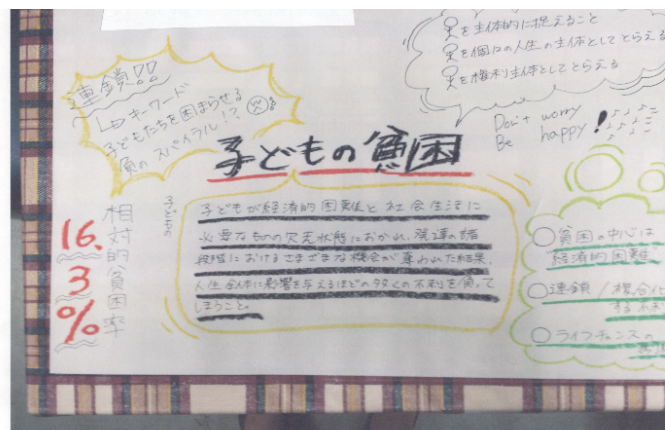 連鎖!!
↳キーワード
子どもたちを困まらせる
負のスパイラル!?
を主体的に捉えること
を個々の人生の主体としてとらえる
を権利主体としてとらえる
Don't worry
Be happy!
子どもの貧困
子どもの
相対的貧困率
16.3%
子どもが経済的困難と社会生活に
必要なものの欠乏状態におかれ、発達の諸
段階におけるさまざまな機会が奪われた結果、
人生全体に影響を与えるほどの多くの不利を負って
しまうこと。
○貧困の中心は
経済的困難
○連鎖/複合化
する不利
○ライフチャンスの